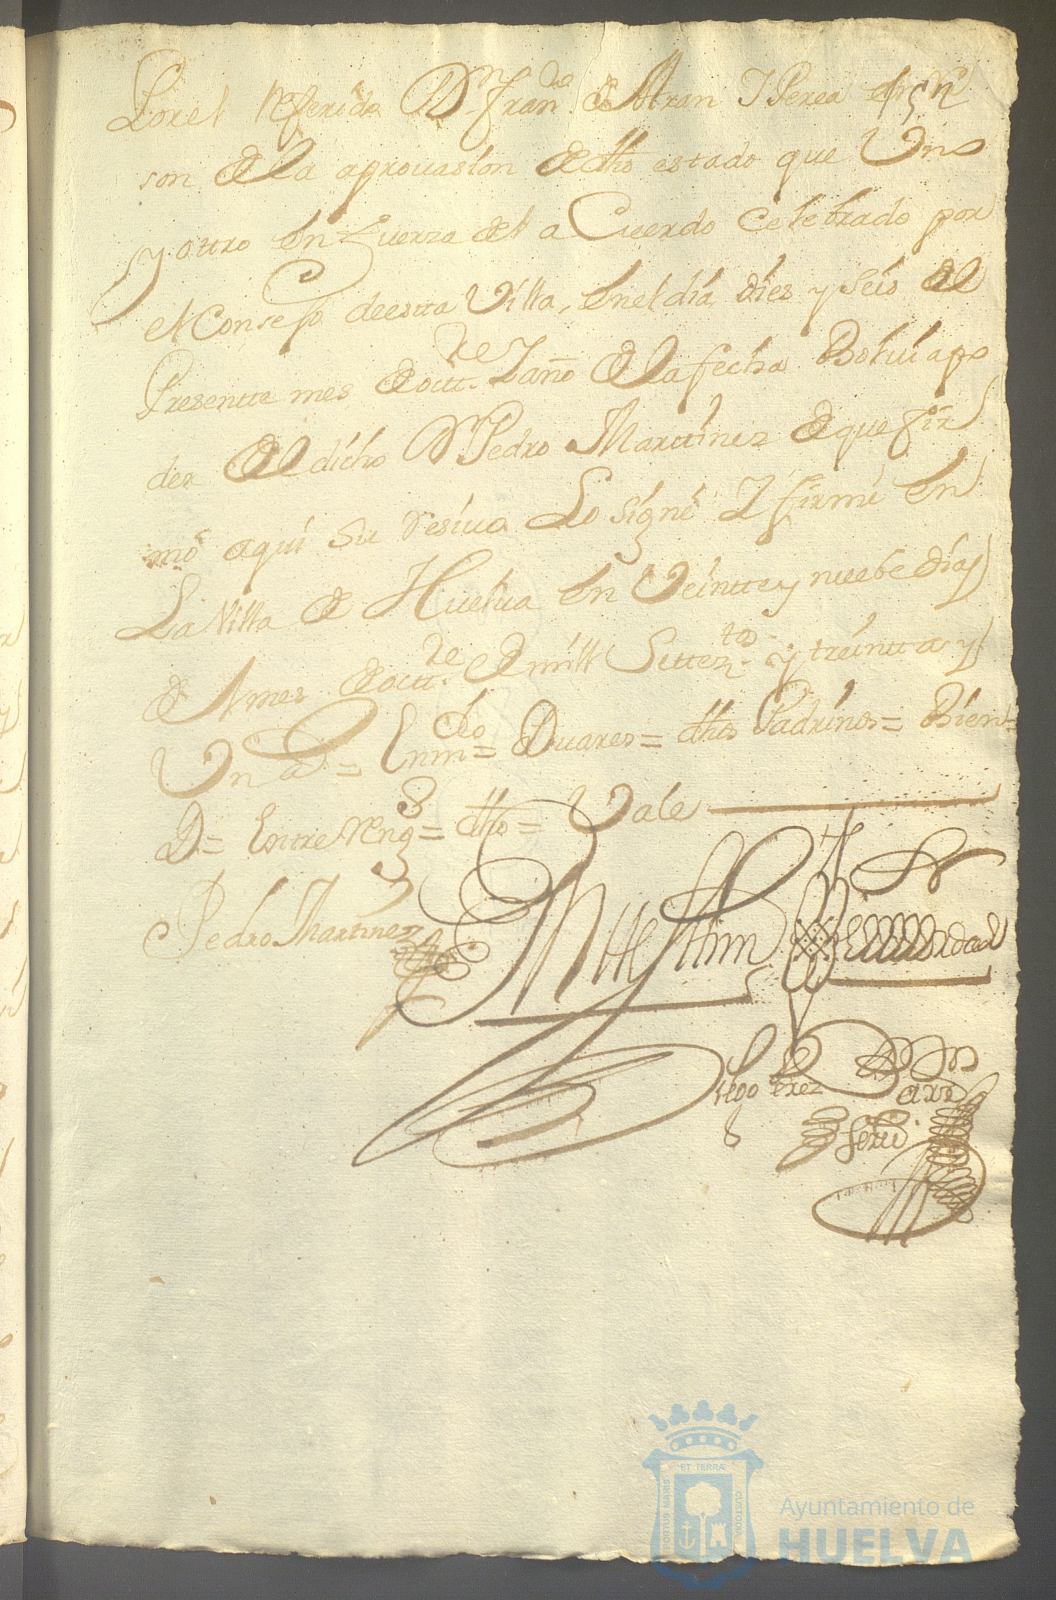 Por el referido Dn Franco de Beltran Y Perea
son de la aprouasion de dho estado que Vno
y otro en fuerza del a Cuerdo Celebrado por
el Consejo de esta Villa, en el dia dies y seis del
Presente mes de octre Y año de la fecha Bolui a po
der del dicho Dn Pedro Martinez de que fir
mó aqui su resiuo Lo signé Y firmé en
La Villa de Huelua en Veintte y nuebe Dias
del mes de octre de mill Setteztos y treintta y
Vn as = Enmdo = Duares = dhos Padrinos = Bien =
D = Entre Reng = dho = Vale
Pedro Martinez
En testim de Verdad
Diego Perez
feria
PORTUS MARIS ET TERRAE CUSTODIA
Ayuntamiento de
HUELVA